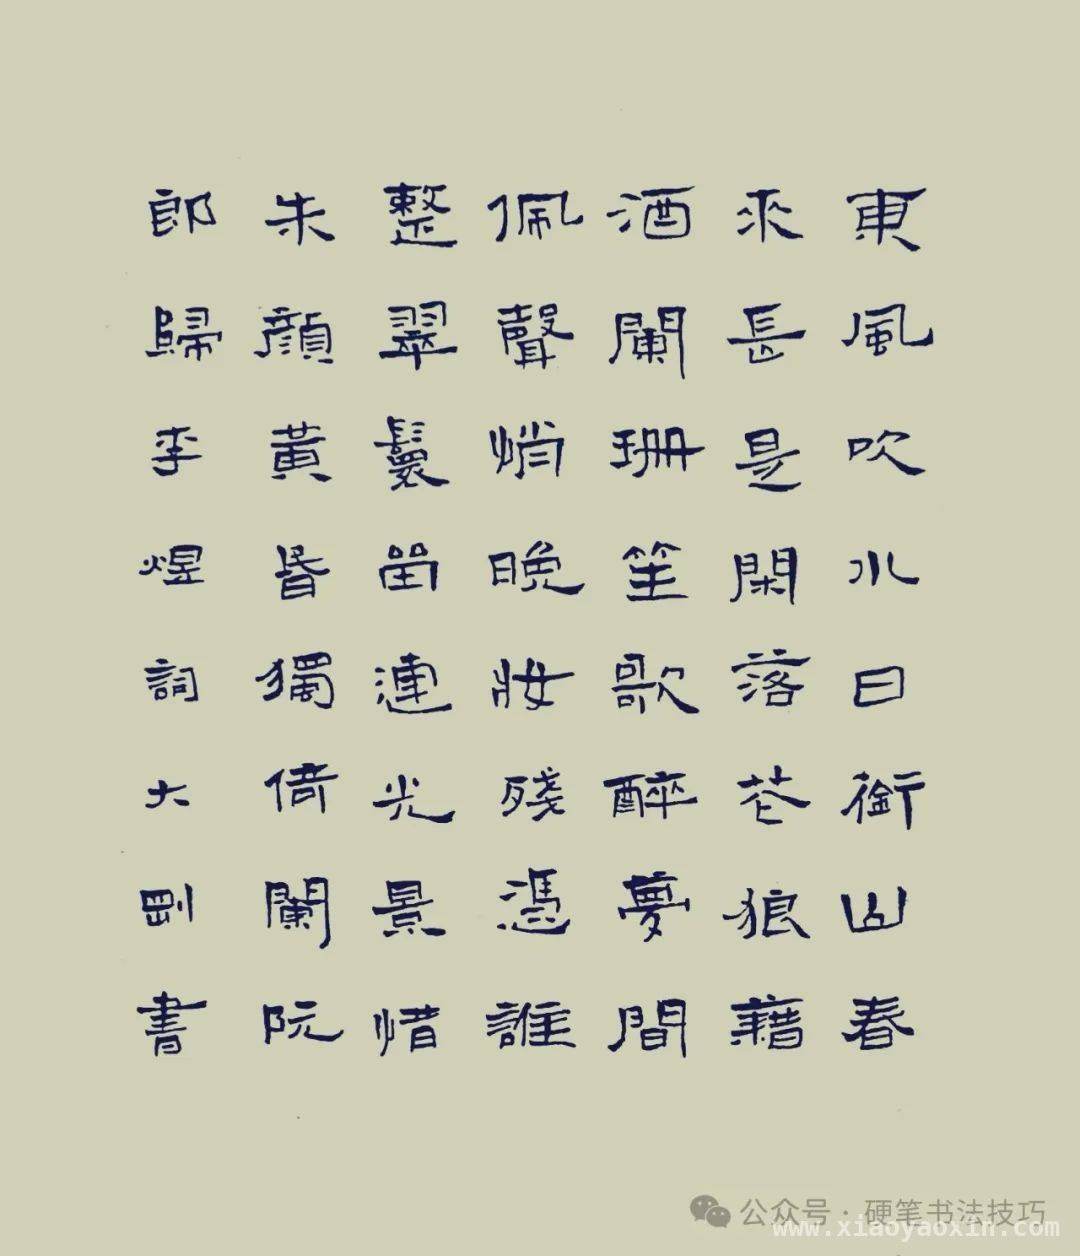 東風吹水日銜山春
來長是閑落花狼藉
酒闌珊笙歌醉夢間
佩聲悄晚妝殘憑誰
整翠鬟留連光景惜
朱顏黃昏獨倚闌阮
郎歸李煜詞大剛書
公众号·硬笔书法技巧
www.xiaoyaoxin.com